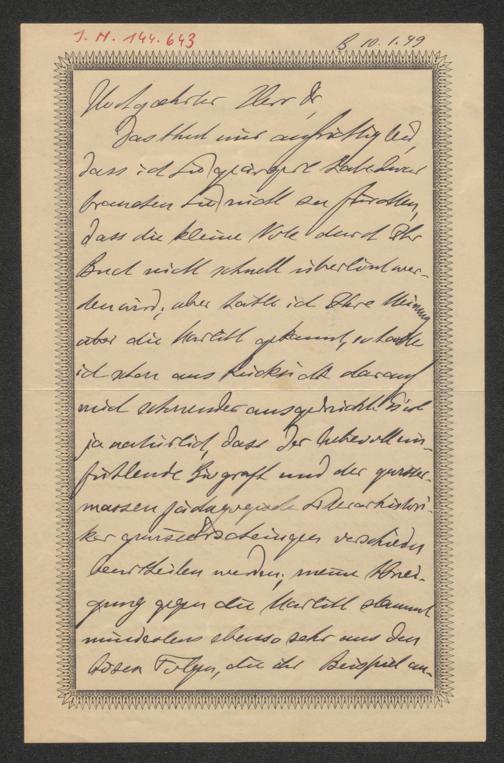 J. N. 144.643
B 10.1.49
Hochgeehrter Herr Dr,
Das thut mir aufrichtig leid,
dass ich Sie geärgert habe. Zwar
brauchen Sie nicht zu fürchten,
dass die kleine Note durch Ihr
Buch nicht schnell übertönt wer-
den wird; aber hätte ich Ihre Meinung
über die Marlitt gekannt, so hätte
ich schon aus Rücksicht darauf
mich schonender ausgedrückt. Es ist
ja natürlich, dass der liebevoll ein-
fühlende Biograph und der gewisser-
massen pädagogische Literarhistori-
ker gewisse Erscheinungen verschieden
beurtheilen werden; meine Abnei-
gung gegen die Marlitt stammt
mindestens ebenso sehr aus den
bösen Folgen, die ihr Beispiel an-